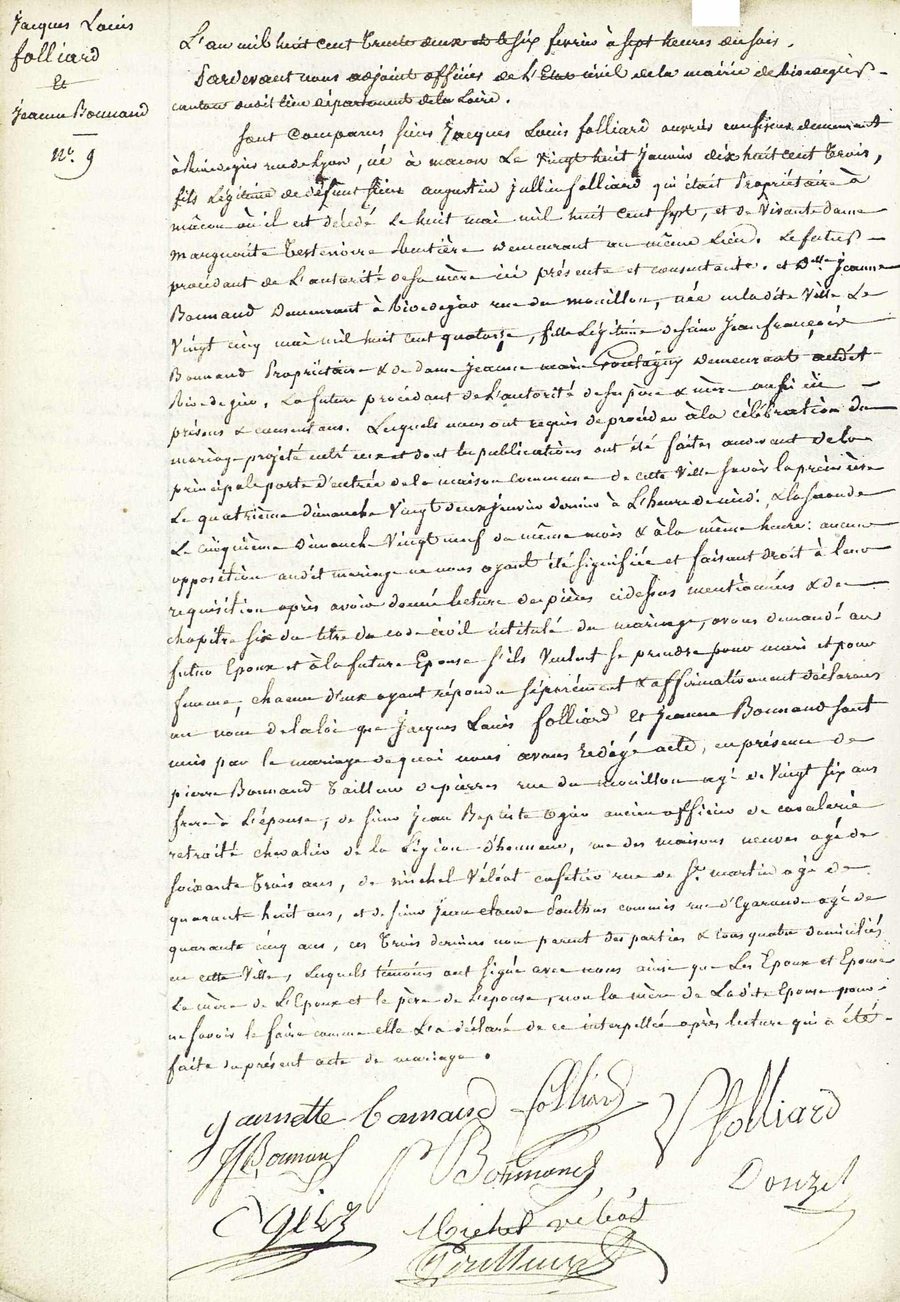 Jacques Louis
folliard
Et
Jeanne Bonnand
N.° 9
L'an mil huit cent trente deux et le six fevrier à sept heures du soir.
Pardevant nous adjoint officier de L'Etat civil de la mairie de rivedegier
canton dudit lieu département de la Loire.
Sont comparus sieur Jacques Louis folliard ouvrier confiseur demeurant
à Rivedegier rue de Lyon, né à macon Le vingt huit Janvier dix huit cent trois,
fils Légitime de défunt sieur augustin jullien folliard qui était Propriétaire à
mâcon où il est décédé Le huit mai mil huit cent sept, et de vivante dame
marguerite testenoire Rentière demeurant au même Lieu. Le futur
procédant de L'autorité de sa mère ici présente et consentante. et D.lle Jeanne
Bonnand Demeurant à Rivedegier rue du mouillon, née en ladite Ville Le
Vingt cinq mai mil huit cent quatorze, fille Légitime de sieur Jean françois
Bonnand Propriétaire & de dame jeanne marie Demeurant audit
Rivedegier. La future procédant de L'autorité de ses père & mère aussi ici
présens & consentans. Lesquels nous ont requis de procéder à la célébration du
mariage projeté entr'eux et dont les publications ont été faites audevant de la
principale porte d'entrée de la maison commune de cette Ville savoir la première
Le quatrième dimanche Vingt deux janvier dernier à L'heure de midi. & la seconde
Le cinquième dimanche Vingt neuf du même mois & à la même heure: aucune
opposition audit mariage ne nous ayant été signifiée et faisant droit à leur
requisition après avoir donné lecture des pièces cidessus mentionnées & du
chapitre six du titre du code civil intitulé du mariage, avons demandé au
futur Epoux et à la future Epouse s'ils veulent se prendre pour mari et pour
femme, chacun d'eux ayant répondu séparément & affirmativement déclarons
au nom de la loi que Jacques Louis folliard Et Jeanne Bonnand sont
unis par le mariage de quoi nous avons rédigé acte, en présence de
pierre Bonnand tailleur de pierres rue du mouillon agé de Vingt six ans
frère à L'épouse, de sieur Jean Baptiste Ogier ancien officier de cavalerie
retraité chevalier de la Légion d'honneur, rue des maisons neuves agé de
soixante trois ans, de michel Véléat cafetier rue de St martin agé de
quarante huit ans, et de sieur Jean claude commis rue d'Egarande agé de
quarante cinq ans, ces trois derniers non parent des parties & tous quatre domiciliés
en cette Ville, Lesquels témoins ont signé avec nous ainsi que Les Epoux et Epouse
La mère de L'Epoux et le père de L'épouse, non la mère de Ladite Epouse pour
ne savoir le faire comme elle L'a déclaré de ce interpellée après lecture qui a été
faite du présent acte de mariage.
jannette bonnand folliard folliard
Bonnand P Bonnand Donzel
Ogier Michel véléat